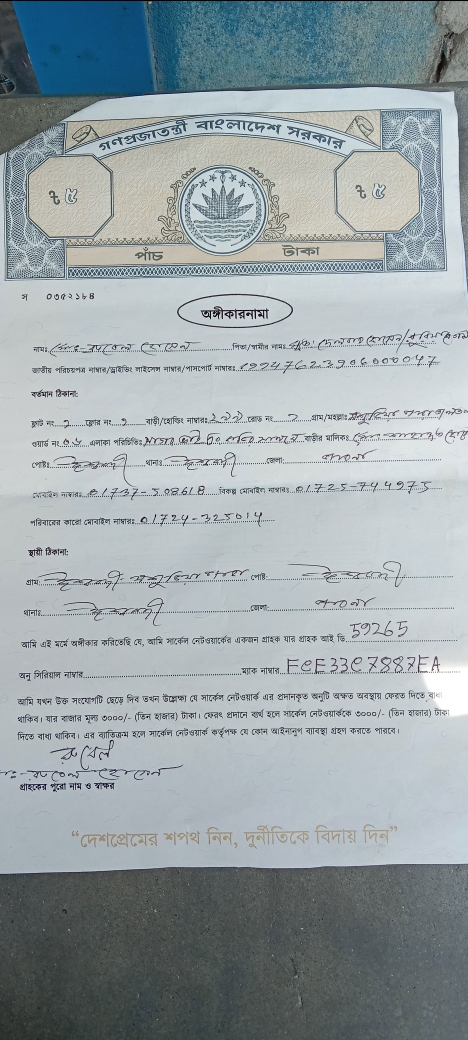 গণপ্রজাতন্ত্রী বাংলাদেশ সরকার
৳ ৫ ৳ ৫
পাঁচ টাকা
স ০৩৫২১৮৪
অঙ্গীকারনামা
নামঃ মোঃ- রুবেল হোসেন পিতা/স্বামীর নামঃ
জাতীয় পরিচয়পত্র নাম্বার/ড্রাইভিং লাইসেন্স নাম্বার/পাসপোর্ট নাম্বারঃ
বর্তমান ঠিকানা:
ফ্লাট নং: ফ্লোর নং: বাড়ী/হোল্ডিং নাম্বারঃ রোড নং: গ্রাম/মহল্লাঃ
ওয়ার্ড নং: এলাকা পরিচিতিঃ বাড়ীর মালিকঃ
পোষ্টঃ ঈশ্বরদী থানাঃ ঈশ্বরদী জেলা: পাবনা
মোবাইল নাম্বারঃ 01737-508618 বিকল্প মোবাইল নাম্বারঃ 01725-744975
পরিবারের কারো মোবাইল নাম্বারঃ 01724-325014
স্থায়ী ঠিকানা:
গ্রাম: পোষ্ট: ঈশ্বরদী
থানাঃ ঈশ্বরদী জেলা: পাবনা
আমি এই মর্মে অঙ্গীকার করিতেছি যে, আমি সার্কেল নেটওয়ার্কের একজন গ্রাহক যার গ্রাহক আই ডি 59265
অনু সিরিয়াল নাম্বার ম্যাক নাম্বার FCE33C7887EA
আমি যখন উক্ত সংযোগটি ছেড়ে দিব তখন উল্লেক্ষ্য যে সার্কেল নেটওয়ার্ক এর প্রদানকৃত অনুটি অক্ষত অবস্থায় ফেরত দিতে বাধ্য
থাকিব। যার বাজার মূল্য ৩০০০/- (তিন হাজার) টাকা। ফেরৎ প্রদানে ব্যর্থ হলে সার্কেল নেটওয়ার্ককে ৩০০০/- (তিন হাজার) টাকা
দিতে বাধ্য থাকিব। এর ব্যতিক্রম হলে সার্কেল নেটওয়ার্ক কর্তৃপক্ষ যে কোন আইনানুগ ব্যাবস্থা গ্রহণ করতে পারবে।
রুবেল
রুবেল হোসেন
গ্রাহকের পুরো নাম ও স্বাক্ষর
“দেশপ্রেমের শপথ নিন, দুর্নীতিকে বিদায় দিন”